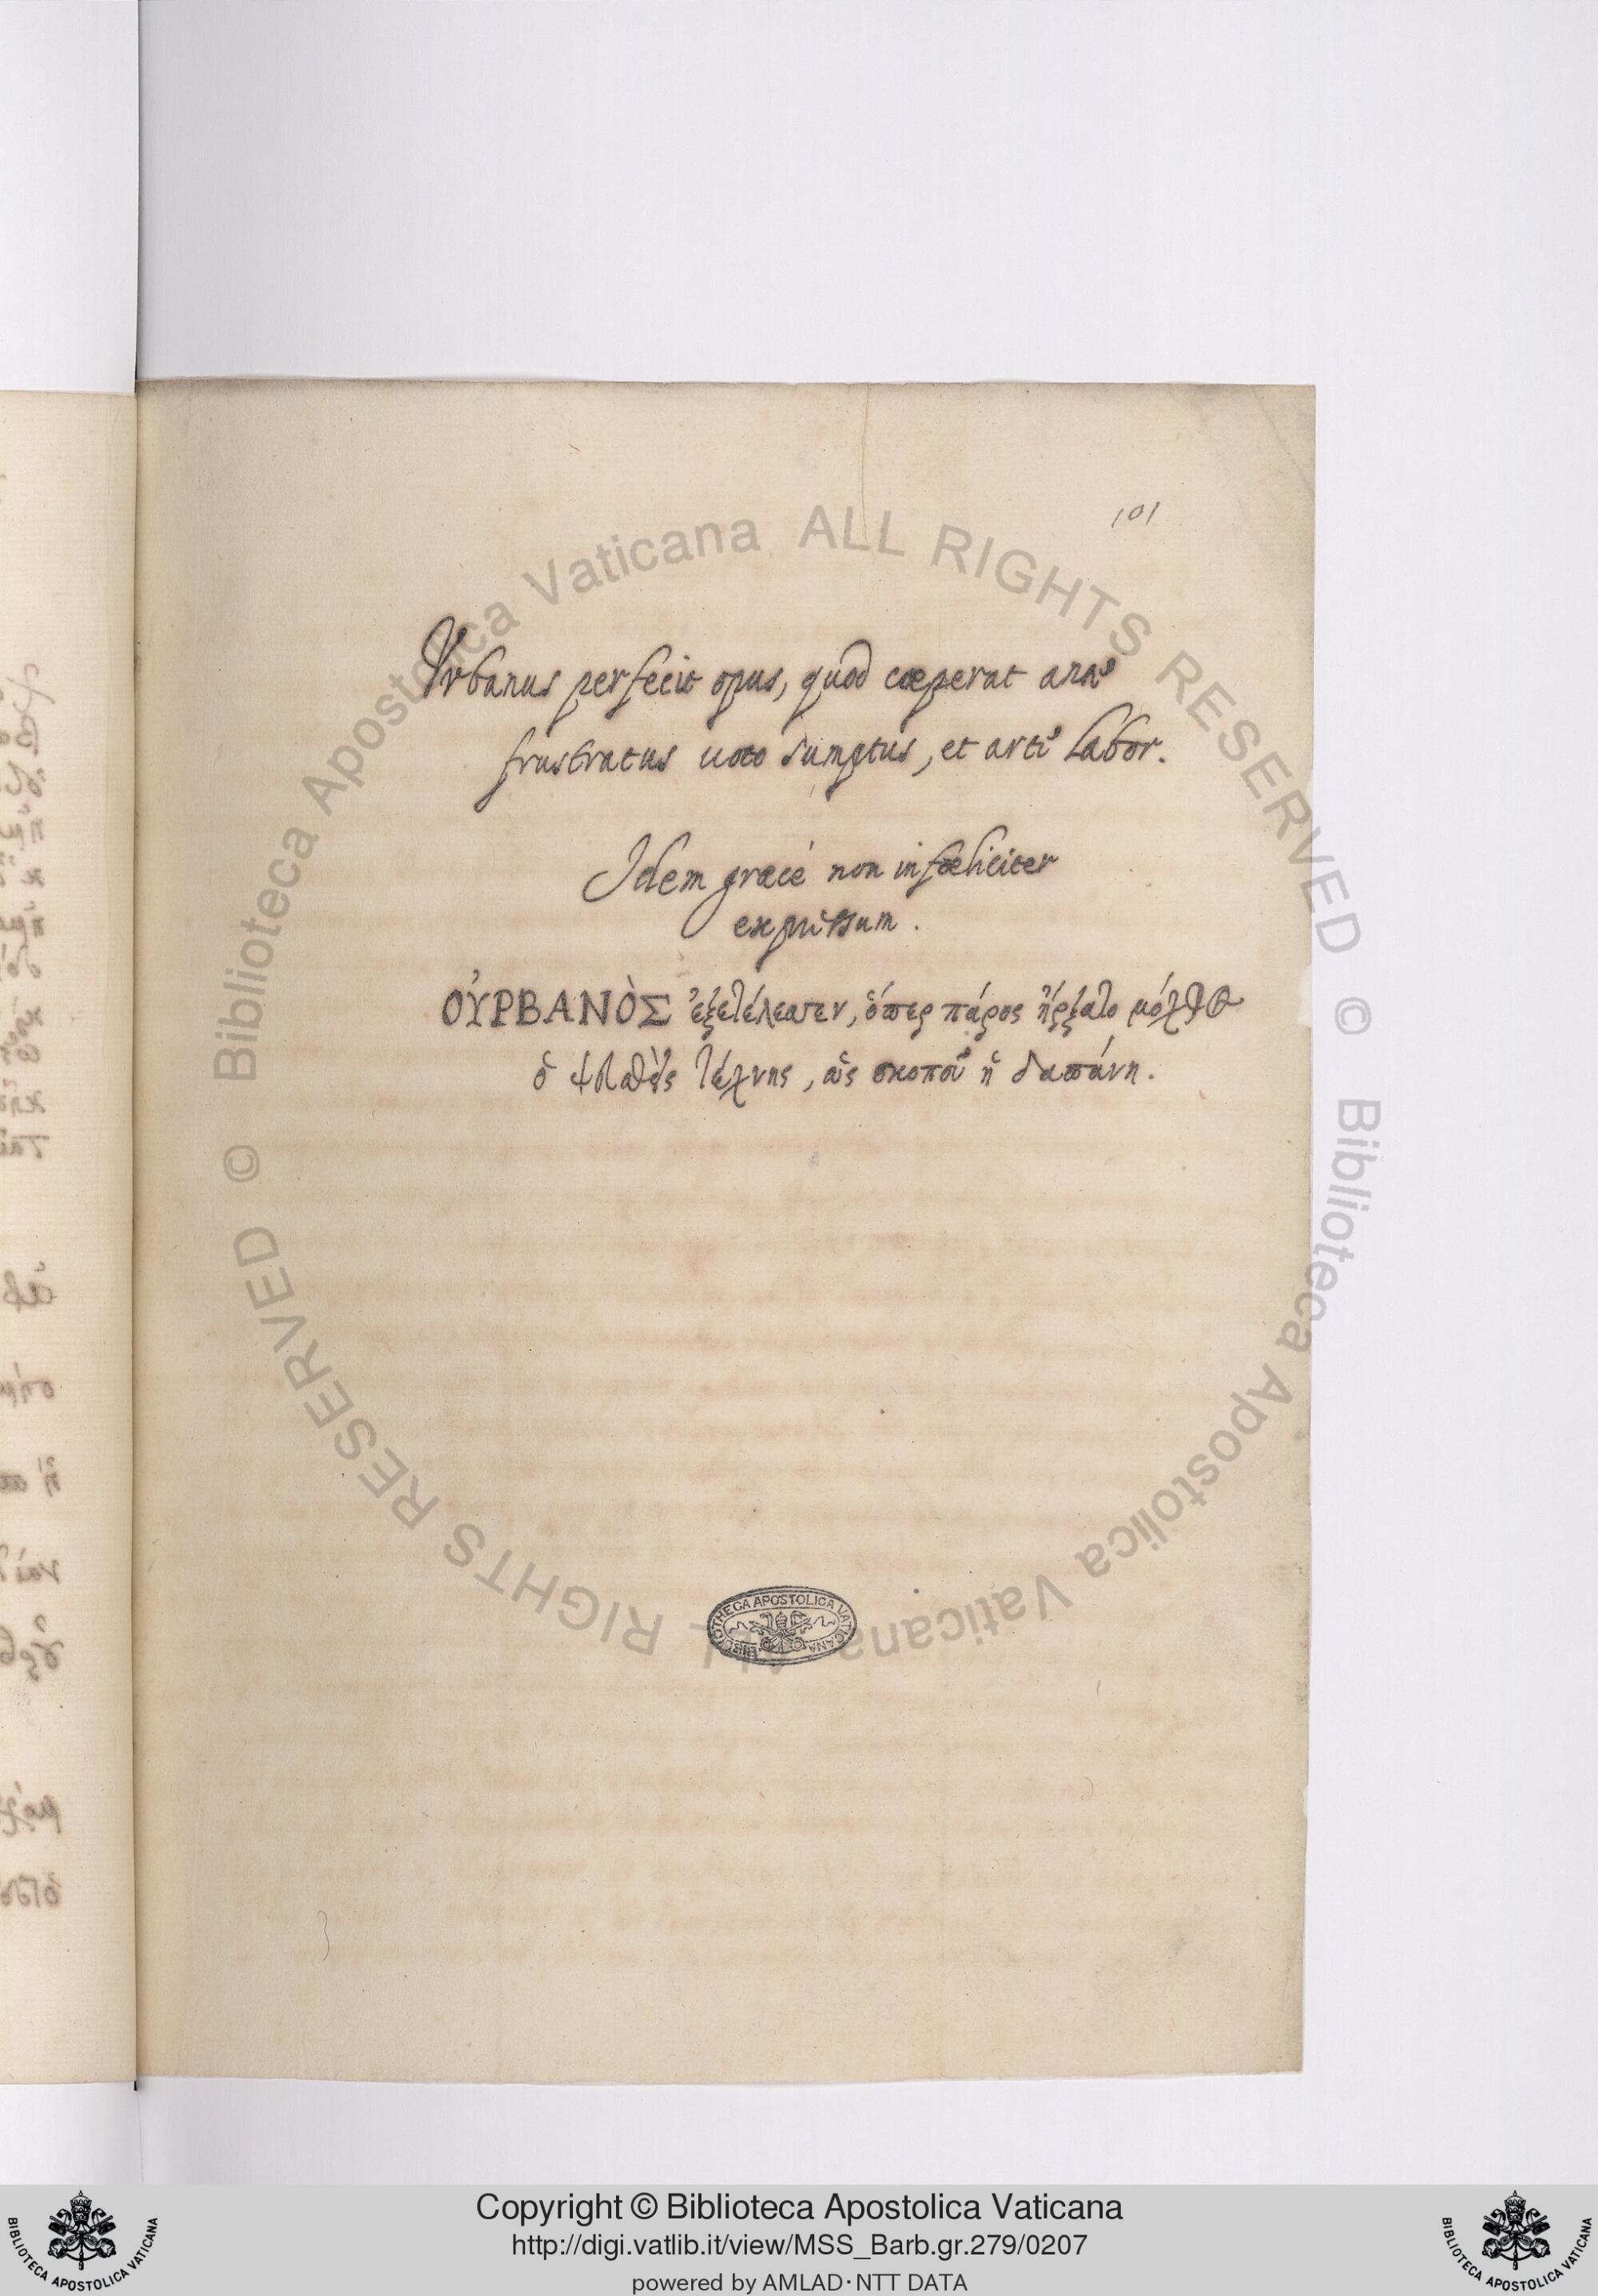 101
Urbanus perfecit opus, quod cœperat ante
frustratus uoto sumptus, et arte labor.
Idem græcè non infœliciter
expressum.
ΟὐΡΒΑΝὸΣ ἐξετέλεσσεν, ὅπερ πάρος ἤρξατο μόχθος
ὁ ψευσθεὶς τέχνης, ὡς σκοποῦ ἡ δαπάνη.
BIBLIOTHECA APOSTOLICA VATICANA
© Biblioteca Apostolica Vaticana ALL RIGHTS RESERVED
© Biblioteca Apostolica Vaticana ALL RIGHTS RESERVED
Copyright © Biblioteca Apostolica Vaticana
http://digi.vatlib.it/view/MSS_Barb.gr.279/0207
powered by AMLAD·NTT DATA
BIBLIOTECA APOSTOLICA VATICANA
BIBLIOTECA APOSTOLICA VATICANA